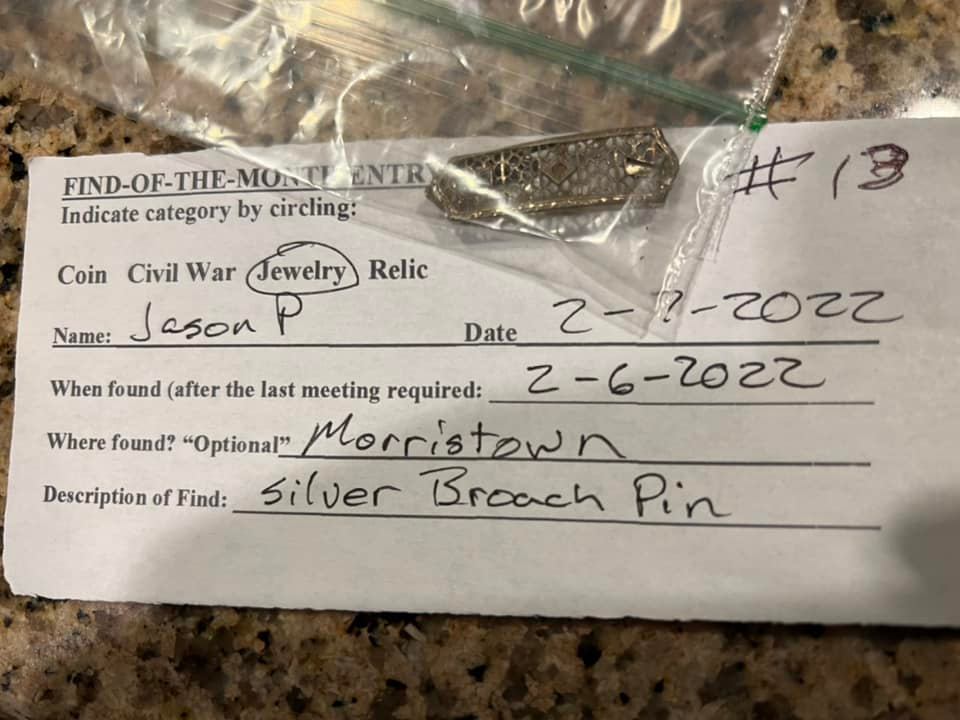 FIND-OF-THE-MONTH ENTRY
# 13
Indicate category by circling:
Coin Civil War Jewelry Relic
Name: Jason P Date 2- -2022
When found (after the last meeting required: 2-6-2022
Where found? “Optional” Morristown
Description of Find: Silver Broach Pin